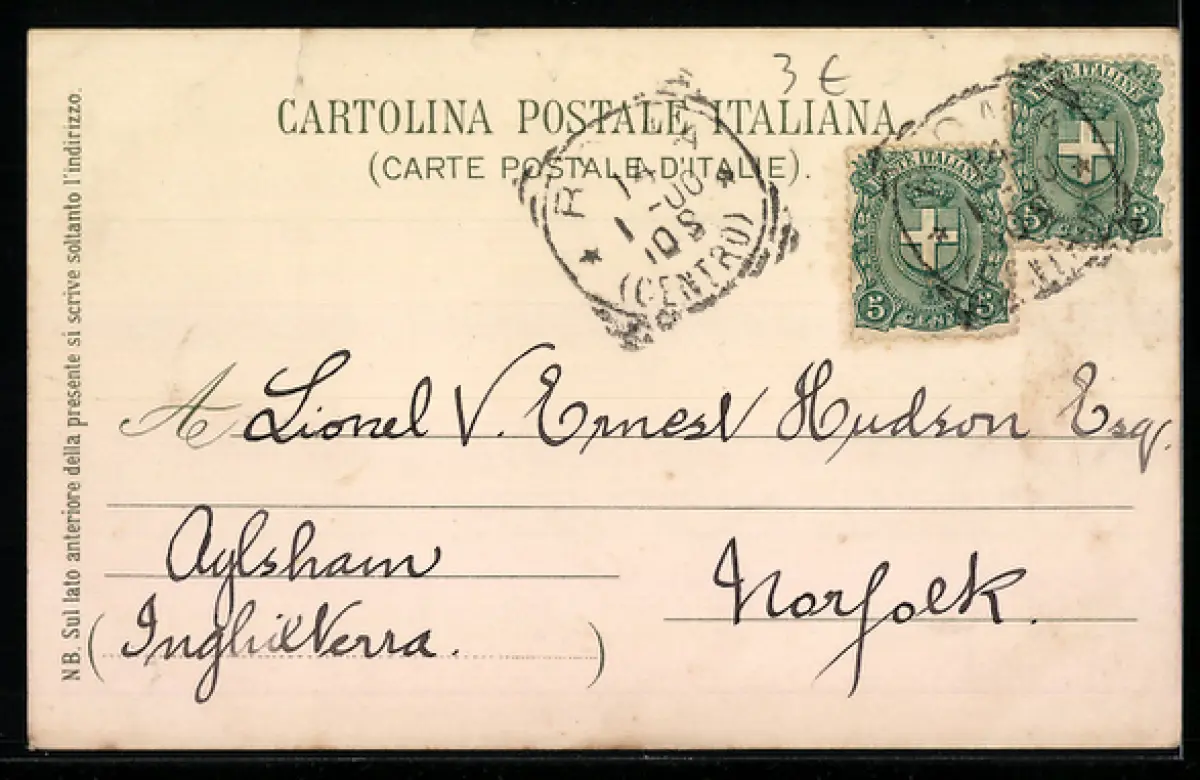 3 €
CARTOLINA POSTALE ITALIANA
(CARTE POSTALE D'ITALIE).
POSTE ITALIANE
5 CENT 5
POSTE ITALIANE
5 CENT 5
1
10 S
(CENTRO)
A Lionel V. Ernest Hudson Esq.
Aylsham
Norfolk.
(Inghilterra.)
NB. Sul lato anteriore della presente si scrive soltanto l'indirizzo.